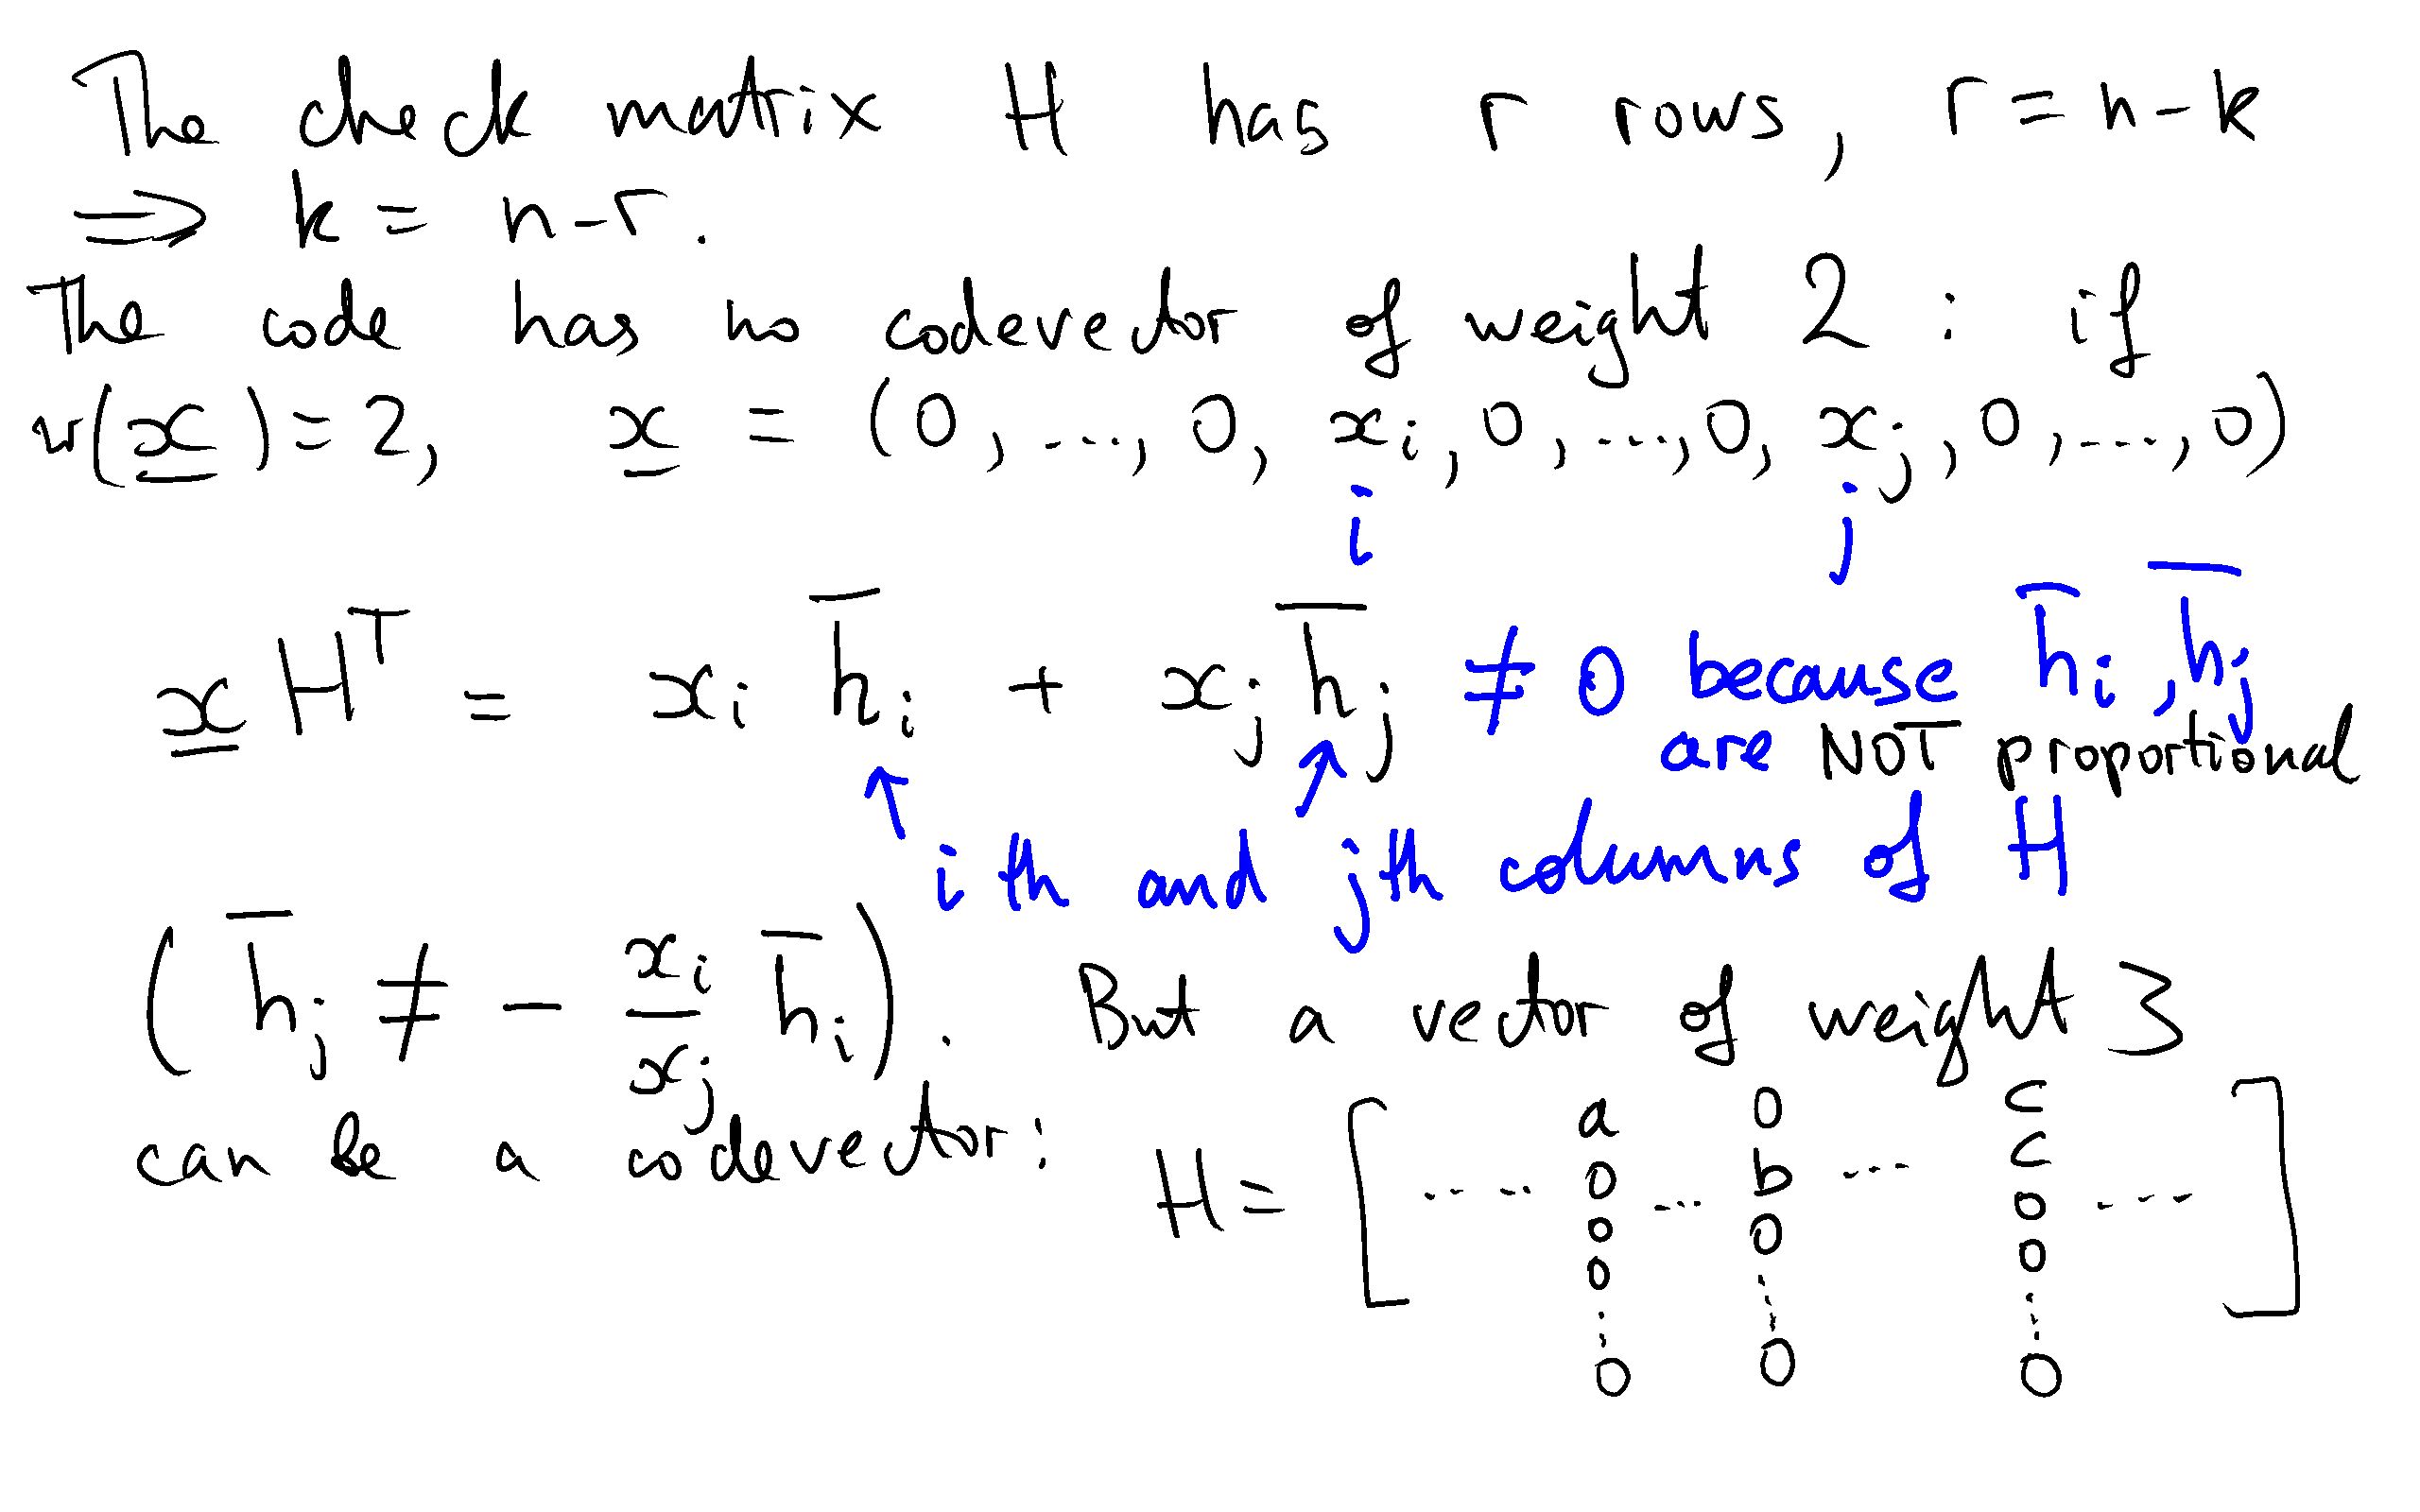 The check matrix H has r rows, r = n - k
⇒ k = n - r.
The code has no codevector of weight 2 : if
w(x̲) = 2, x̲ = (0, ..., 0, xᵢ, 0, ..., 0, xⱼ, 0, ..., 0)
i j
x̲ Hᵀ = xᵢ h̅ᵢ + xⱼ h̅ⱼ ≠ 0 because h̅ᵢ, h̅ⱼ
are NOT proportional
↑ ↑
i th and jth columns of H
(h̅ⱼ ≠ - xᵢ/xⱼ h̅ᵢ). But a vector of weight 3
can be a codevector: H = [ .... a ... 0 ... c ... ]
0 b c
0 0 0
0 ⋮ 0
⋮ ⋮ ⋮
0 0 0